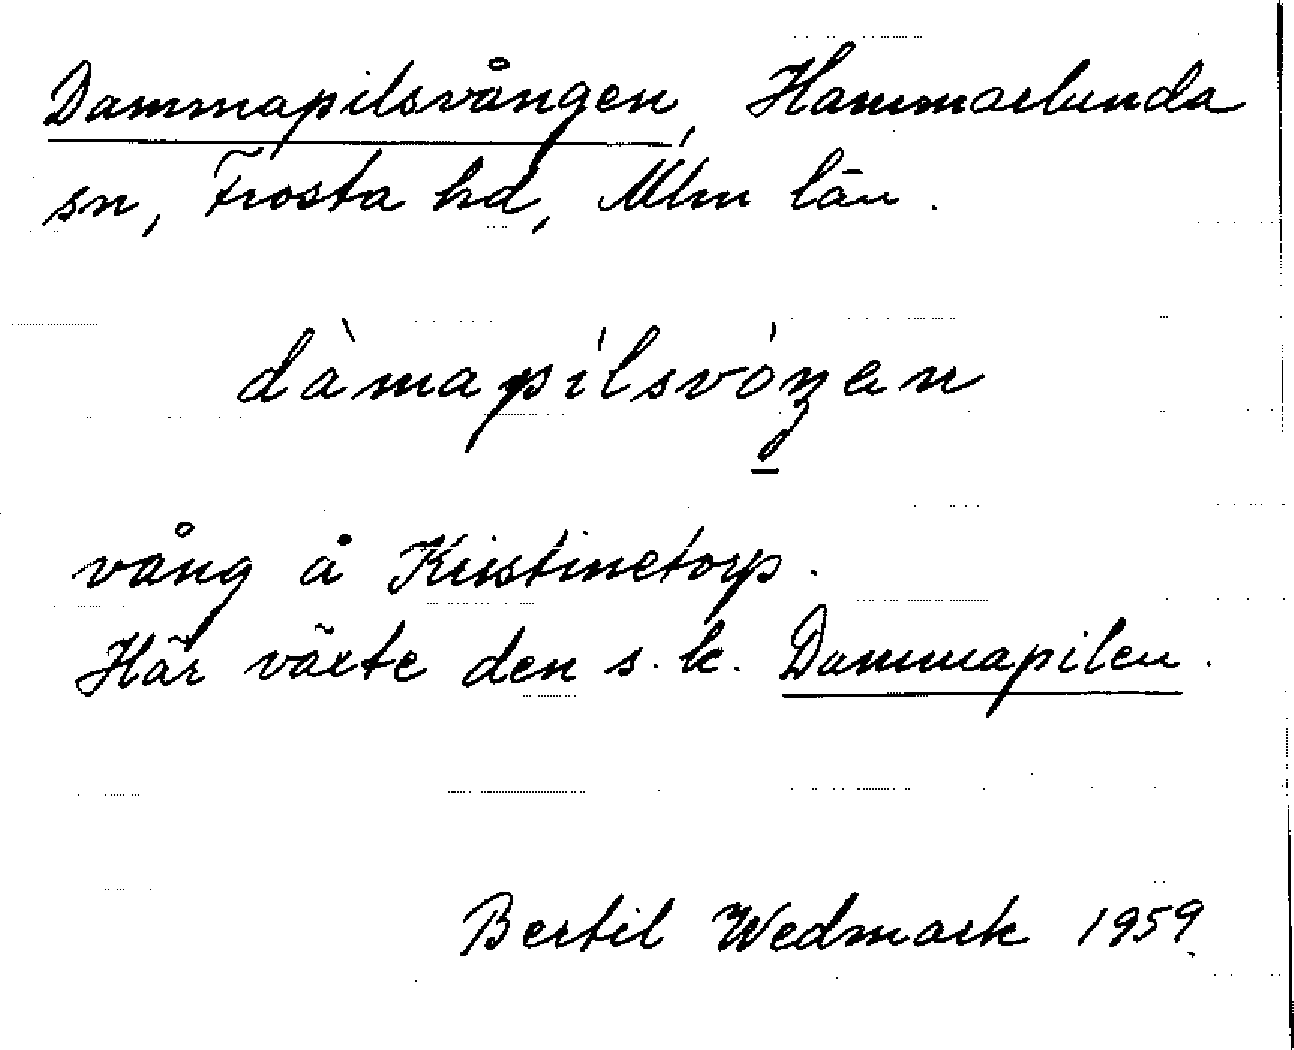 Dammapilsvången, Hammarlunda
sn, Frosta hd, Mlm län.
dàmapílsvóŋen
vång å Kristinetorp.
Här växte den s.k. Dammapilen.
Bertil Wedmark 1959